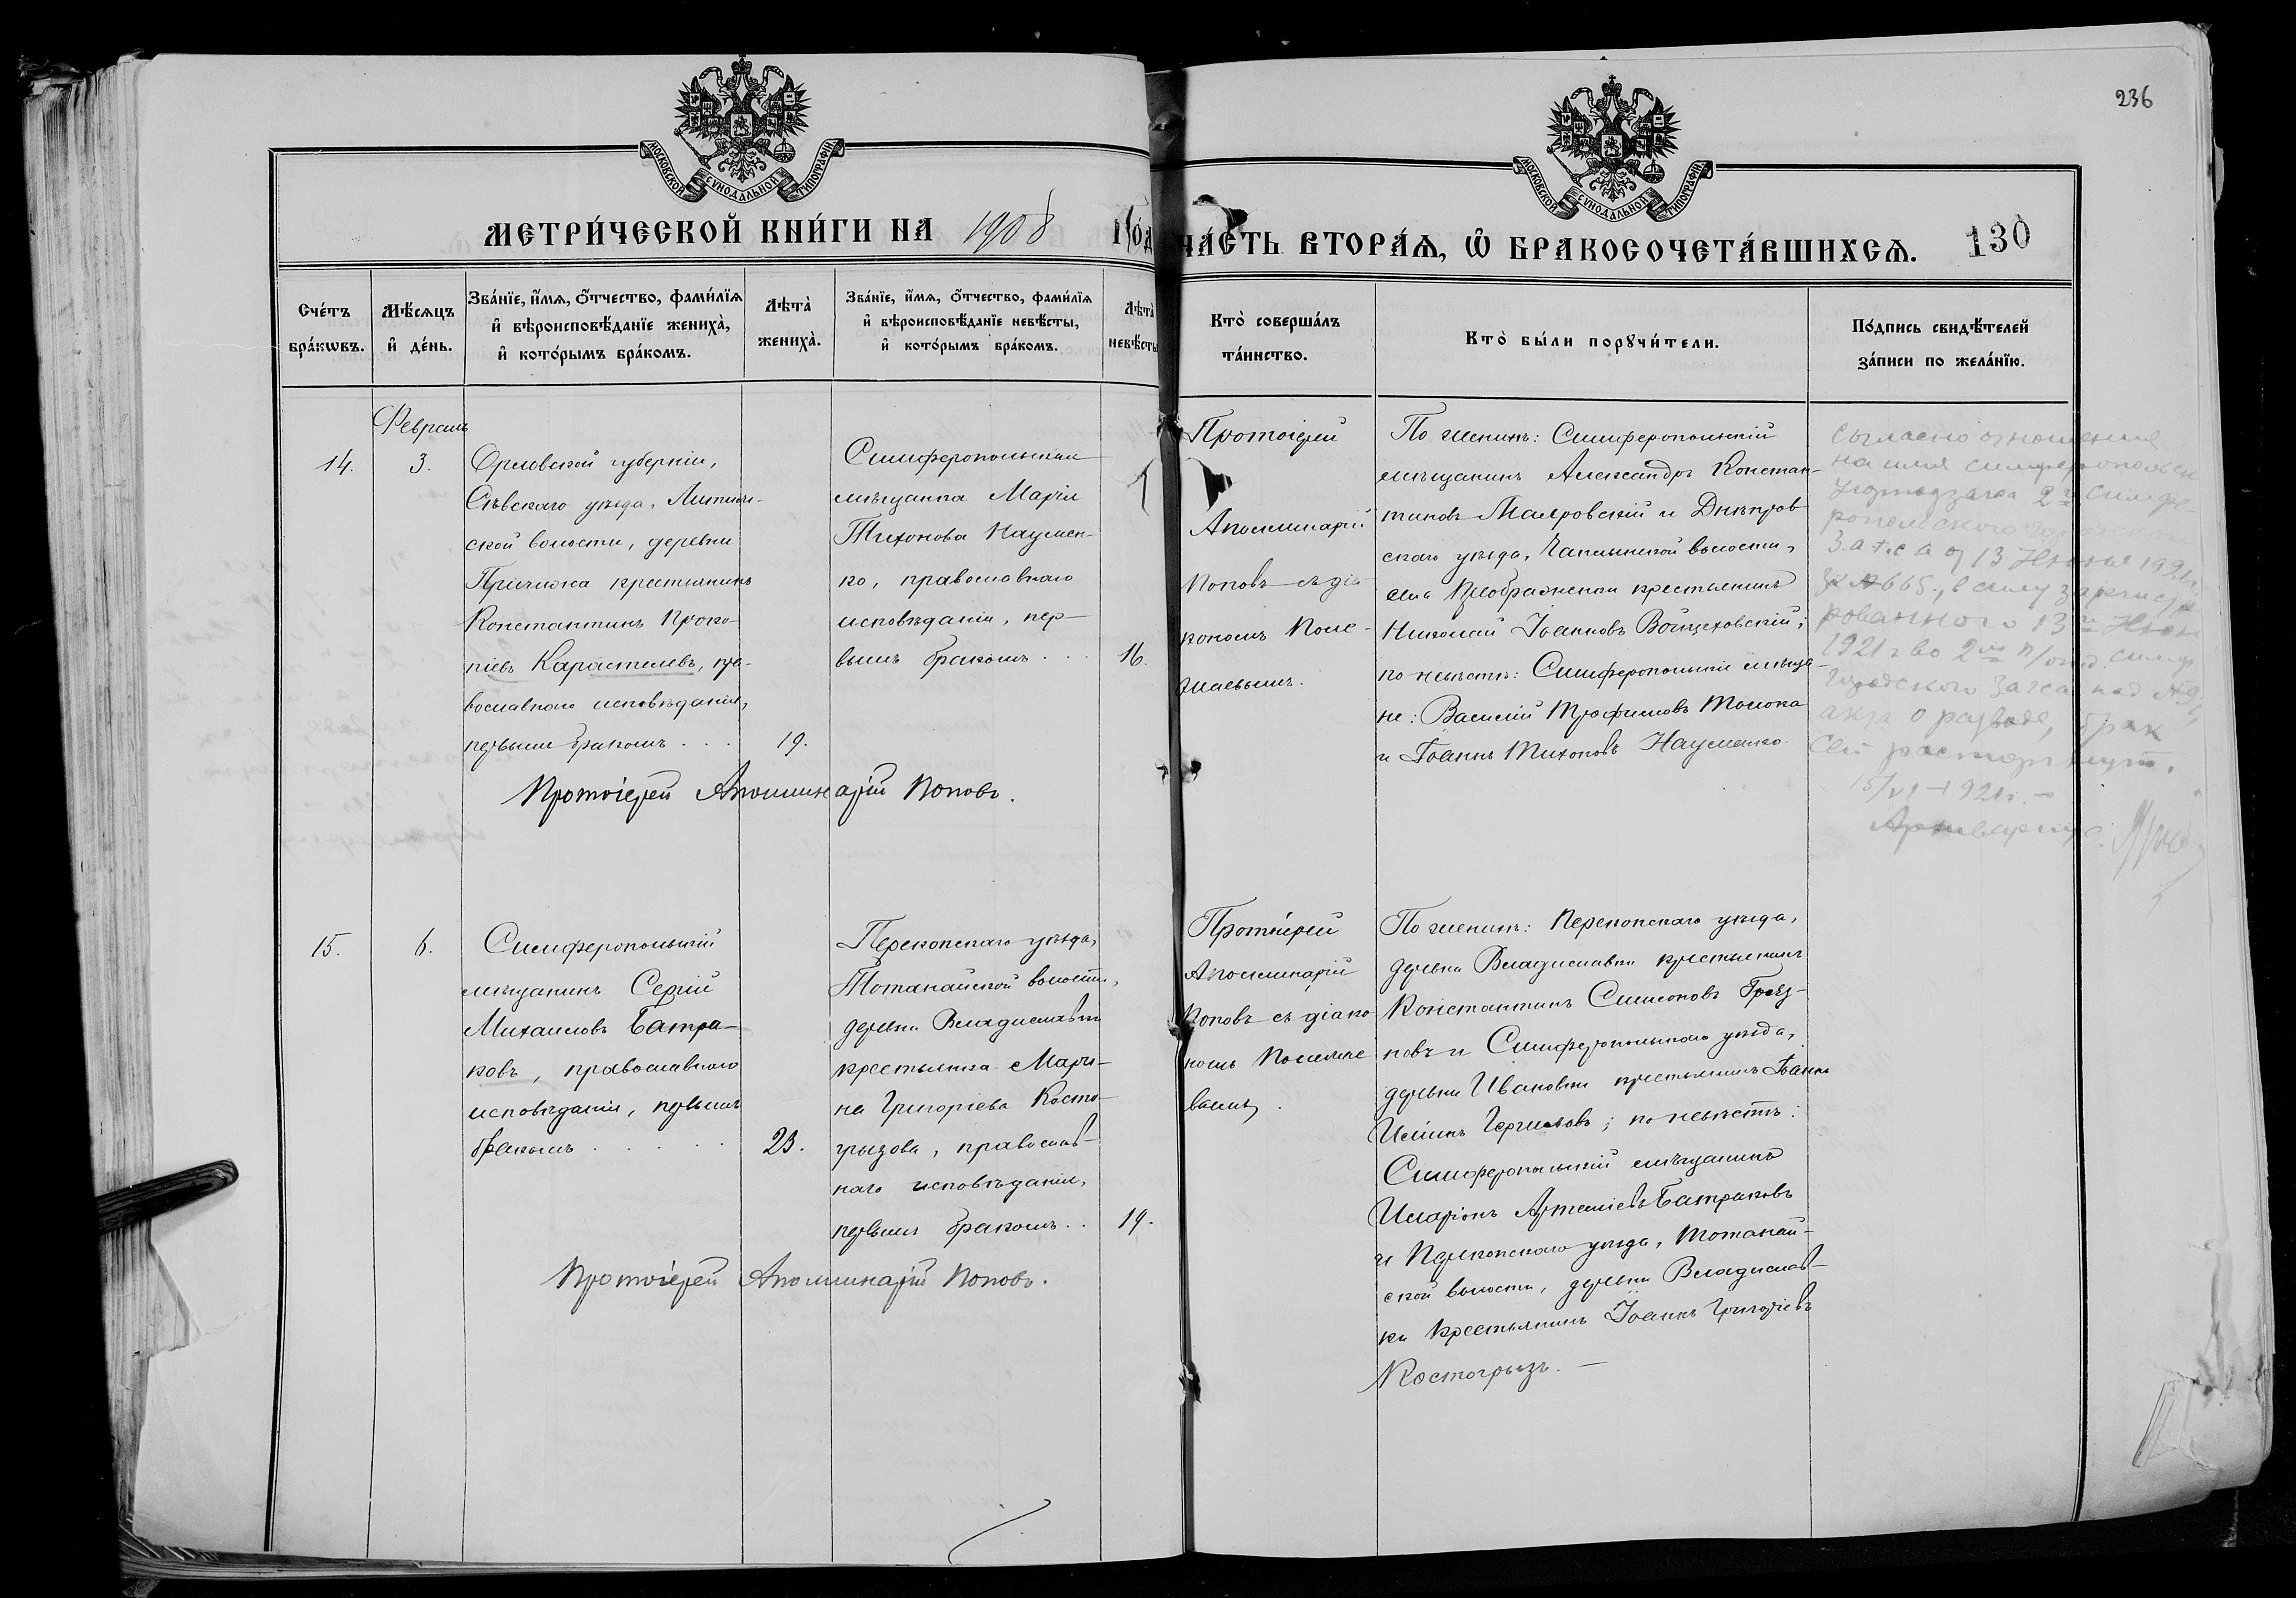 236
МОСКОВСКОЙ СѴНОДАЛЬНОЙ ТИПОГРАФІИ
МОСКОВСКОЙ СѴНОДАЛЬНОЙ ТИПОГРАФІИ
МЕТРИ́ЧЕСКОЙ КНИ́ГИ НА 1908 Го́д
ЧА́СТЬ ВТОРА́Ѧ, Ѡ БРАКОСОЧЕТА́ВШИХСѦ.
130
Сче́тъ бра́кѡвъ.
Мѣ́сѧцъ и҆ де́нь.
Зва́нїе, и҆́мѧ, ѻ҆́тчество, фами́лїѧ
и҆ вѣроисповѣ́данїе жениха̀,
и҆ кото́рымъ бра́комъ.
Лѣта̀ жениха̀.
Зва́нїе, и҆́мѧ, ѻ҆́тчество, фами́лїѧ
и҆ вѣроисповѣ́данїе невѣ́сты,
и҆ кото́рымъ бра́комъ.
Лѣта̀ невѣ́сты
Кто̀ соверша́лъ
та́инство.
Кто̀ бы́ли порꙋчи́тели.
По́дпись свидѣ́телей
за́писи по жела́нїю.
Февраль
14.
3.
Орловской губерніи,
Сѣвскаго уѣзда,
ской волости, деревни
крестьянинъ
Константинъ Проко-
піевъ Каростелевъ, пра-
вославнаго исповѣданія,
первымъ бракомъ . . .
19.
Симферопольская
мѣщанка Марія
Тихонова Наумен-
ко, православнаго
исповѣданія, пер-
вымъ бракомъ . . .
16.
Протоіерей
Аполлинарій
Поповъ съ діа-
кономъ Поле-
жаевымъ.
По женихѣ: Симферопольскій
мѣщанинъ Александръ Констан-
тиновъ Маяровскій и Днѣпров
скаго уѣзда, Чаплинской волости,
села Преображенки крестьянинъ
Николай Іоанновъ Войцеховскій;
по невѣстѣ: Симферопольскіе мѣща-
не: Василій Трофимовъ Молока
и Іоаннъ Тихоновъ Науменко
согласно отношения
на имя симферопольск
2го Симфе
ропольского
З.а.г.с а от 13 Июня 1921г.
за №665, в силу зарегистри
рованного 13го Июня
1921 г во 2м п/отд. симф
городского Загса под №9
акта о разводе, брак
сей расторгнут.
15/VI-1921г. –
Архивариус
Протоіерей Аполлинарій Поповъ.
15.
6.
Симферопольскій
мѣщанинъ Сергій
Михаиловъ Батра-
ковъ, православнаго
исповѣданія, первымъ
бракомъ . . . .
23.
Перекопскаго уѣзда,
Тотанайской волости,
деревни Владиславки
крестьянка Мари-
на Григоріева Косто-
грызова, православ-
наго исповѣданія,
первымъ бракомъ . .
19.
Протоіерей
Аполлинарій
Поповъ съ діако
номъ Полежае
вымъ.
По женихѣ: Перекопскаго уѣзда,
деревни Владиславки крестьянинъ
Константинъ Симеоновъ
новъ и Симферопольскаго уѣзда,
деревни Ивановки крестьянинъ Іоаннъ
; по невѣстѣ:
Симферопольскій мѣщанинъ
Иларіонъ Артеміевъ Батраковъ
и Перекопскаго уѣзда, Тотанай-
ской волости, деревни Владислав-
ки крестьянинъ Іоаннъ Григоріевъ
Костогрызъ. –
Протоіерей Аполлинарій Поповъ.